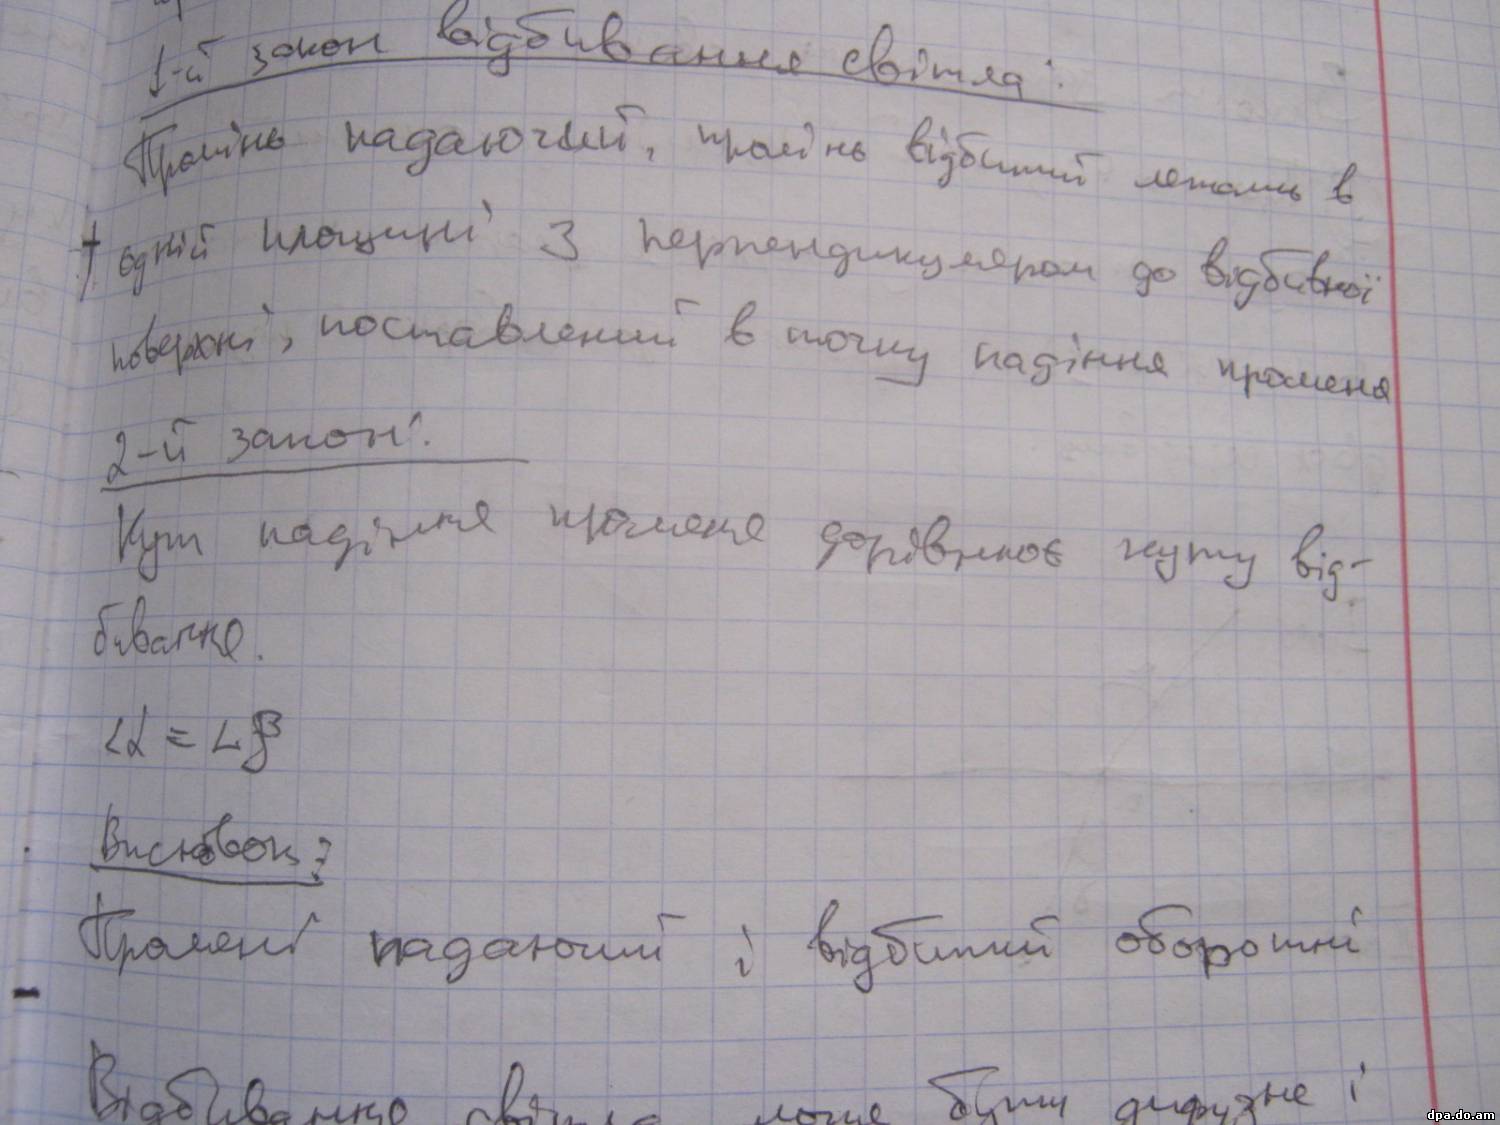 1-й закон відбивання світла:
Промінь падаючий, промінь відбитий лежать в
одній площині з перпендикуляром до відбивної
поверхні, поставлений в точку падіння променя
2-й закон:
Кут падіння променя дорівнює куту від-
бивання.
∠α = ∠β
Висновок:
Промені падаючий і відбитий оборотні
Відбивання світла може бути дифузне і
dpa.do.am